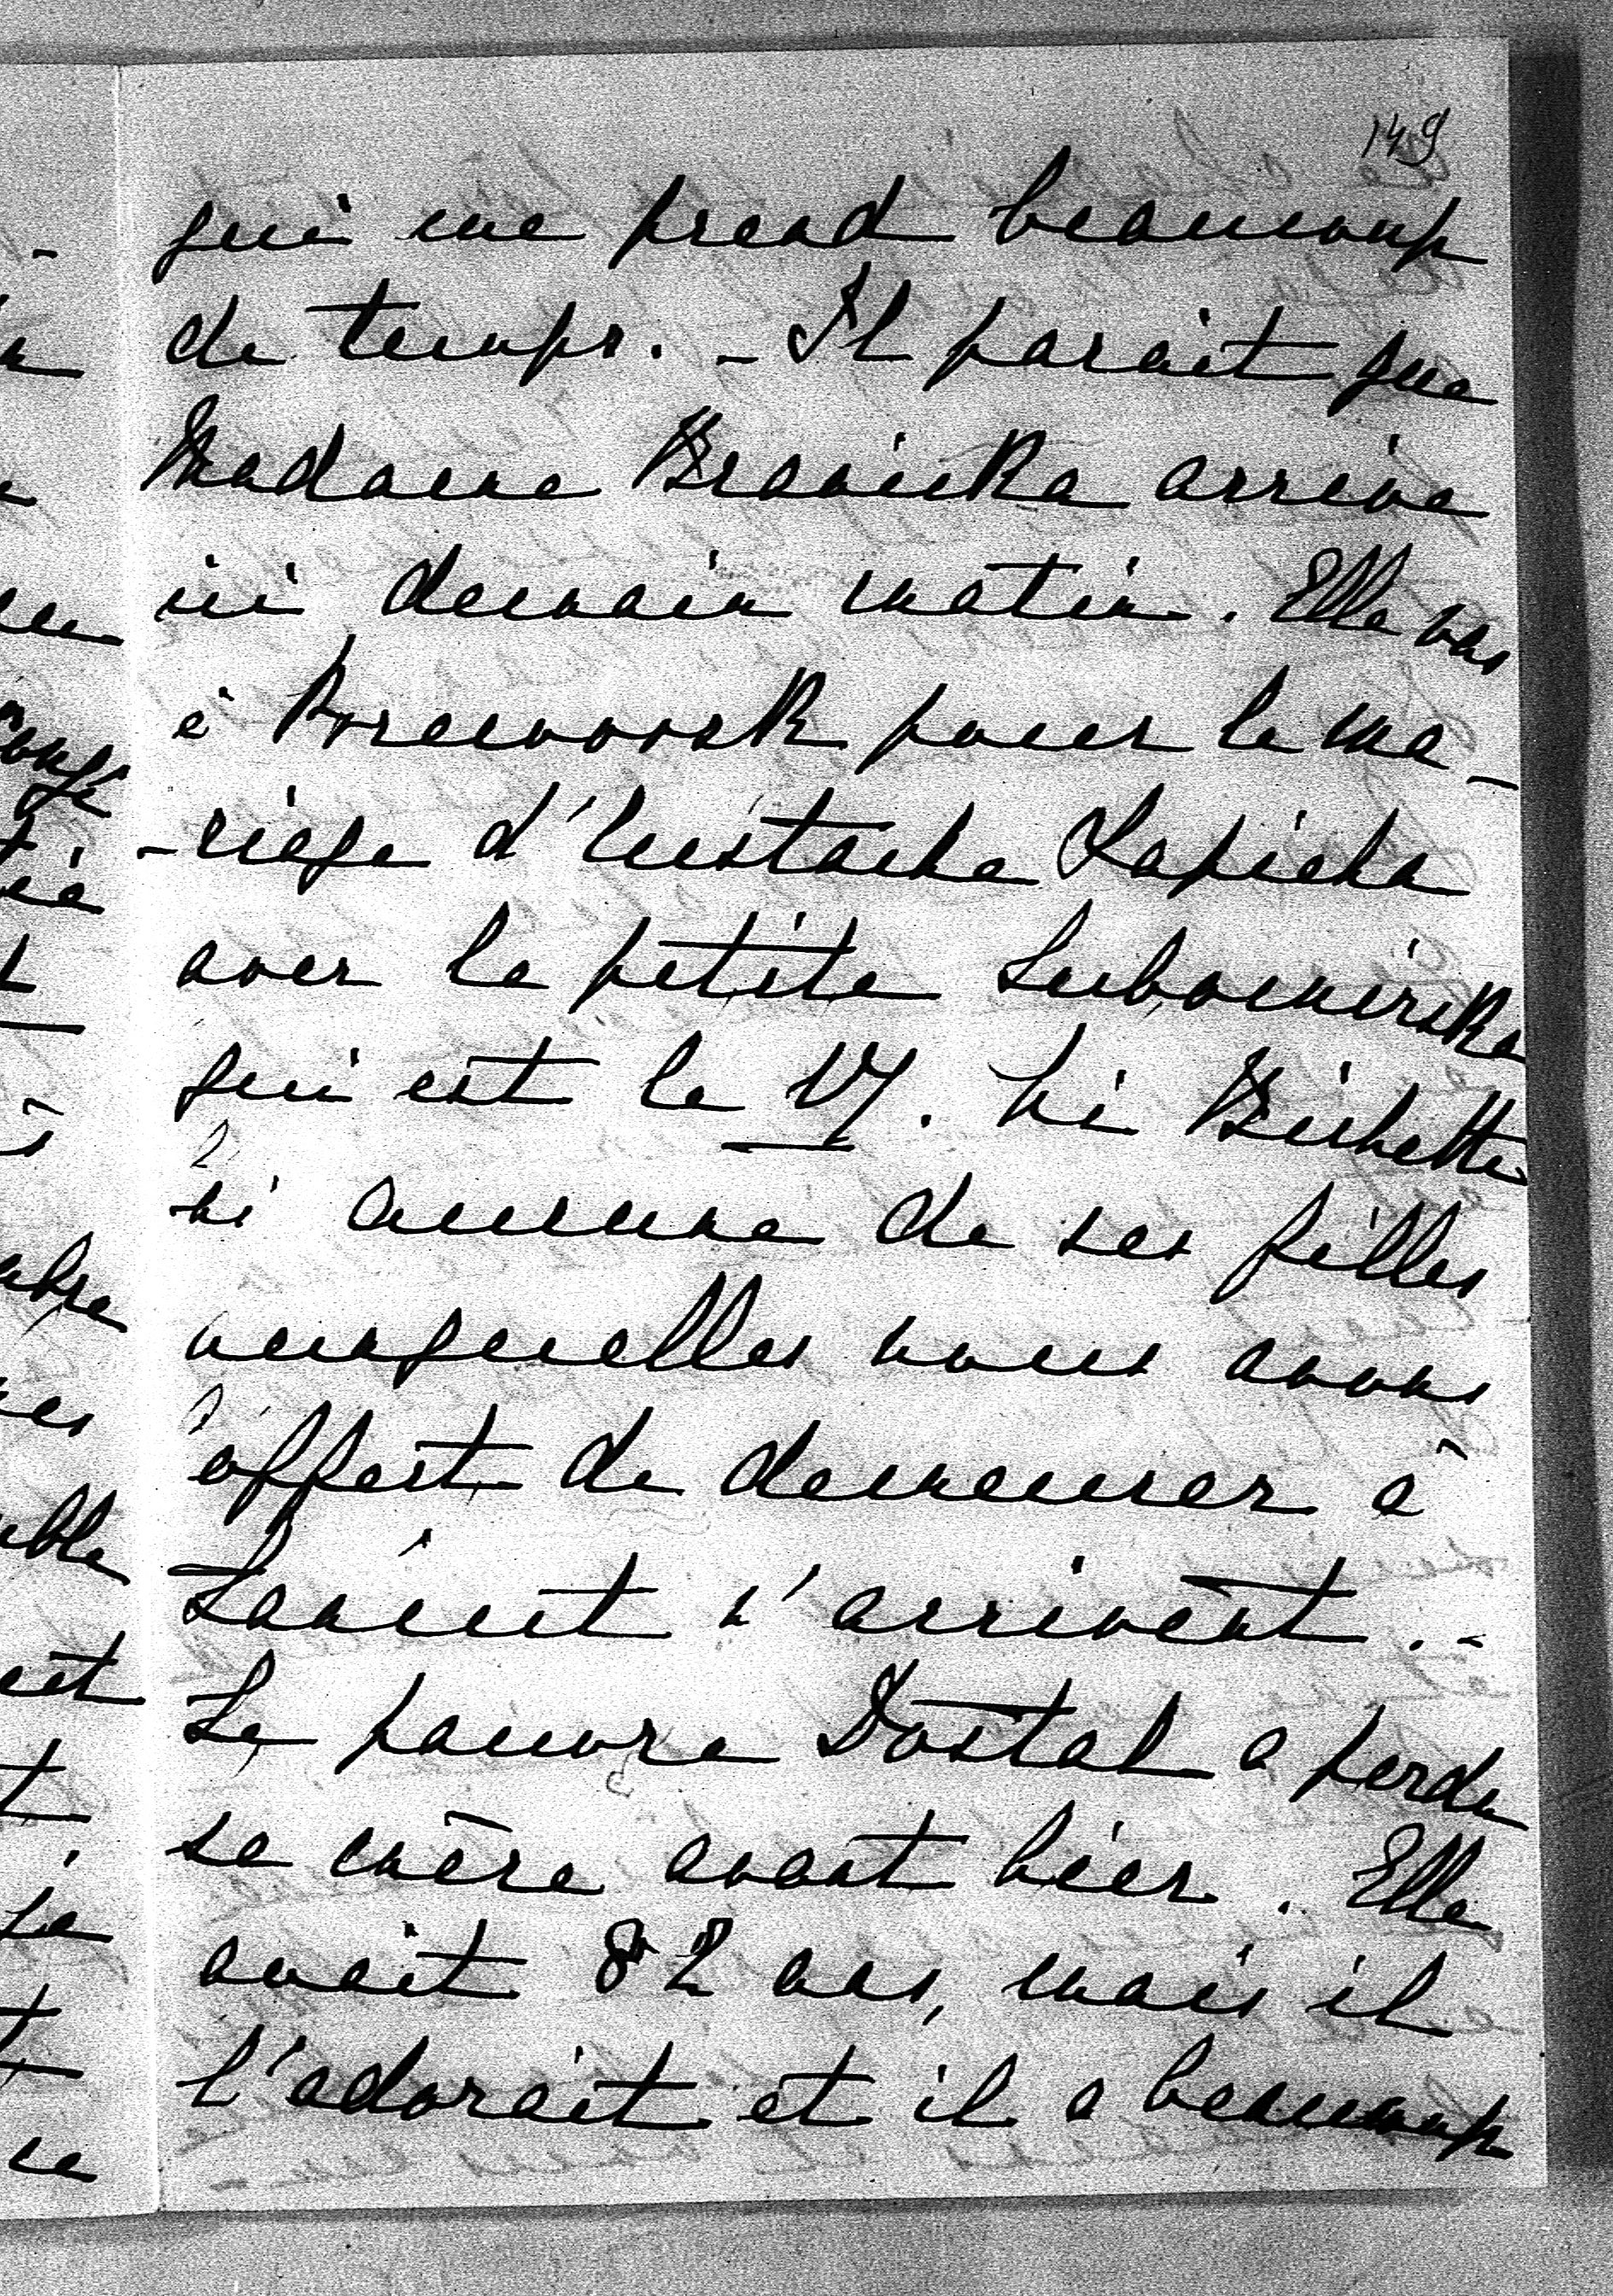 149
qui me prend beaucoup
de temps. _ Il parait que
Madame Branicka arrive
ici demain matin. Elle vas
à pour le ma-
-riage d'Eustache Sapieha
avec la petite Lubomirska
qui est le 17. Ni Bichette
ni aucune de ses filles
auxquelles nous avons
offert de demeurer à
Lancut n'arrivent. -
Le pauvre Dostal a perdu
sa mère avant hier. Elle
avait 82 ans, mais il
l'adorait et il a beaucoup